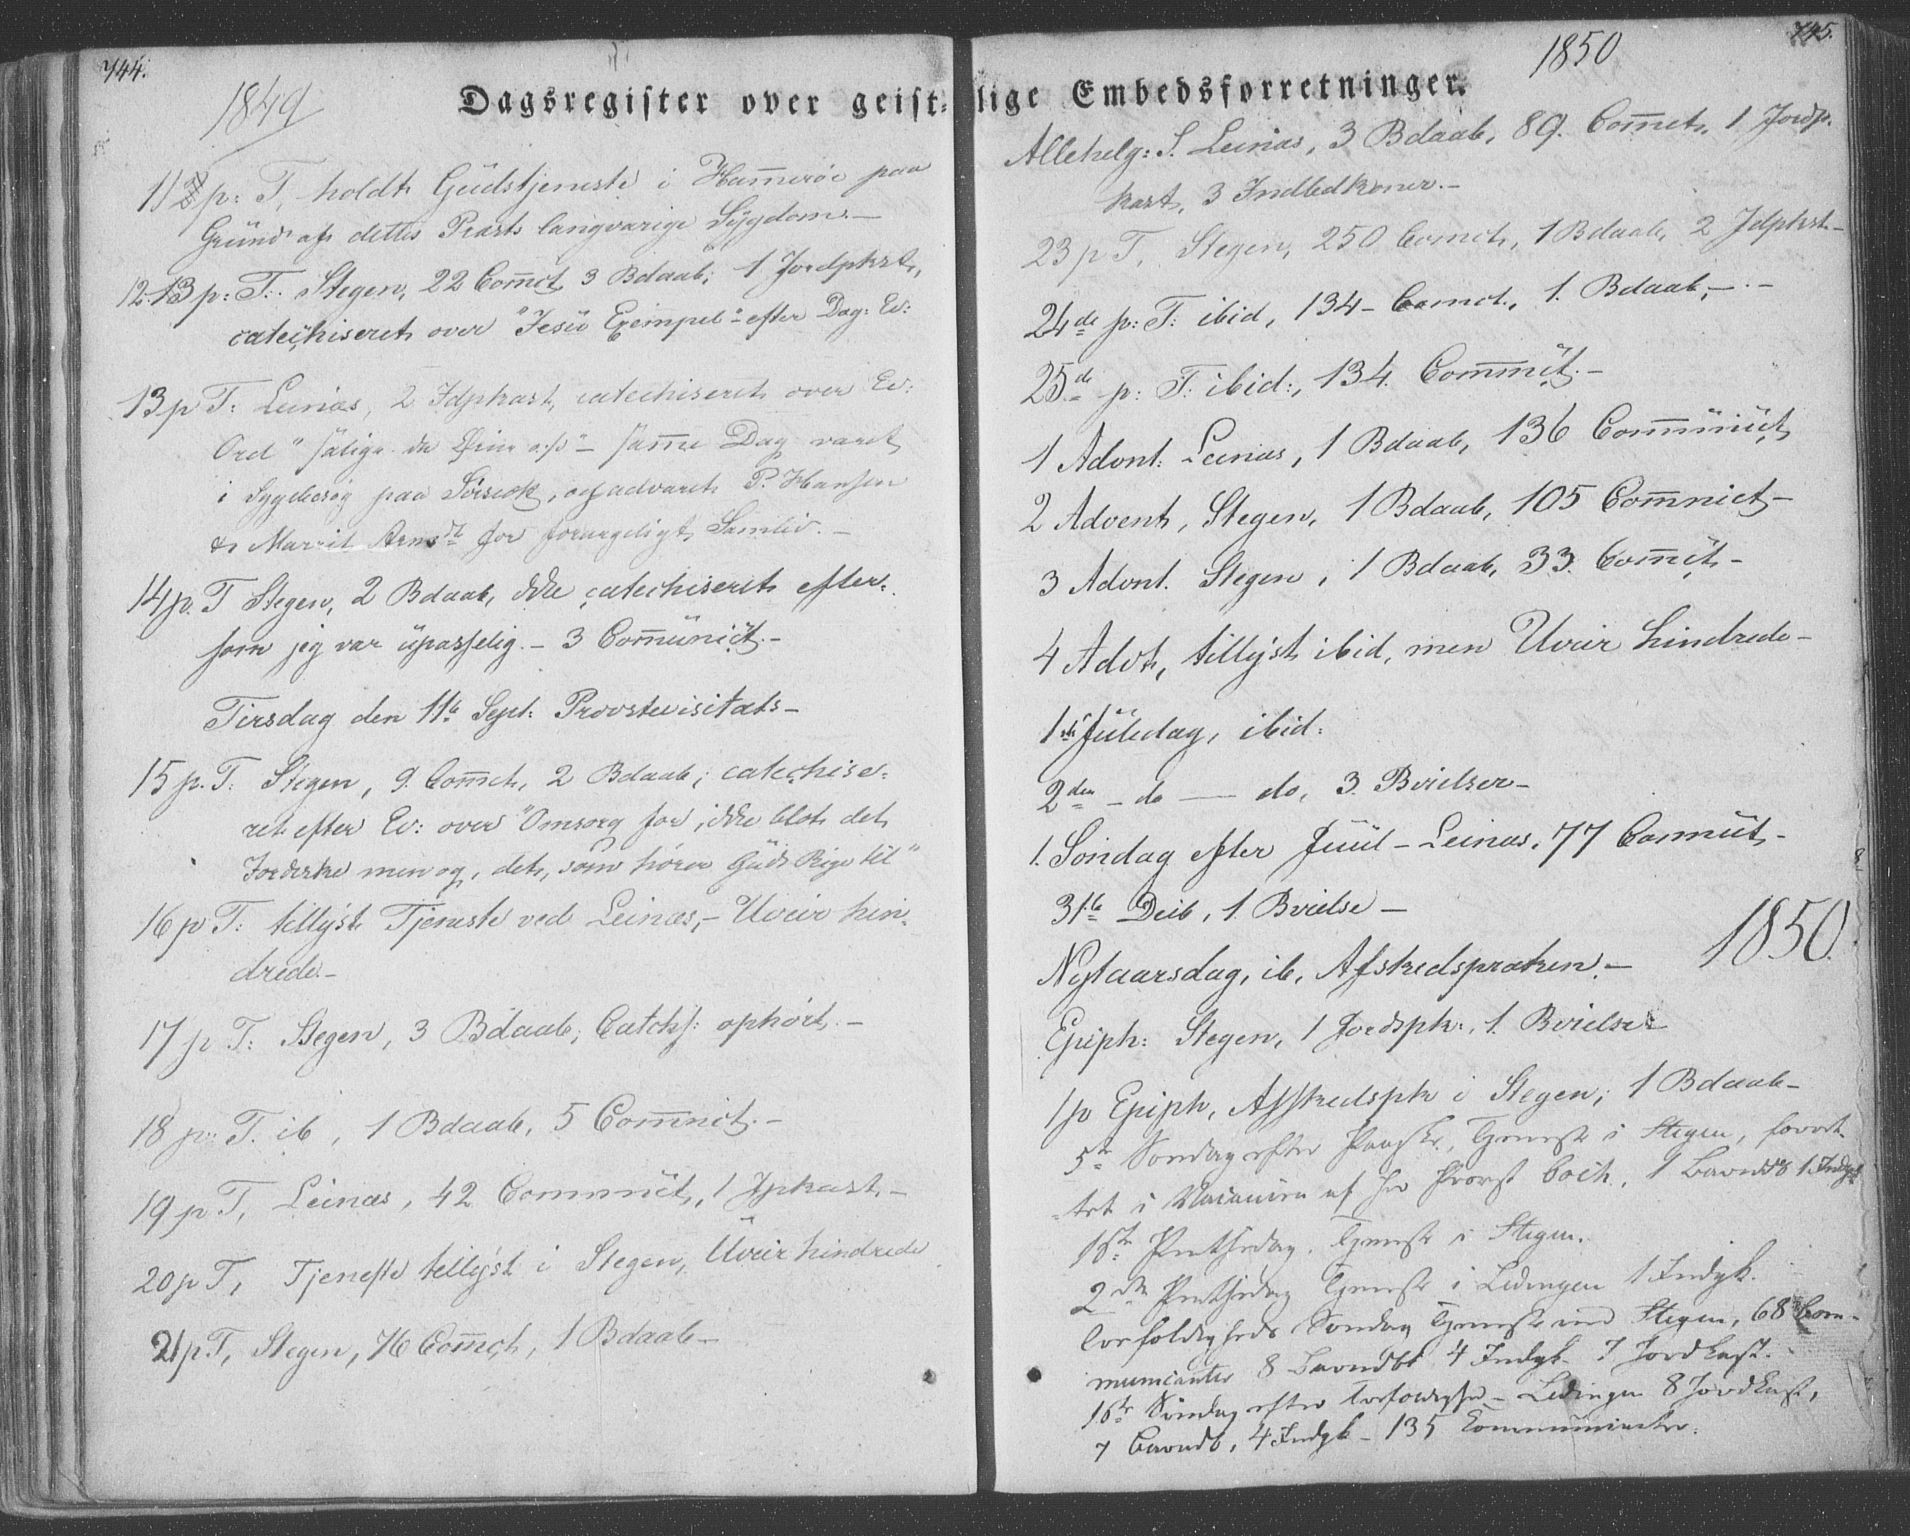 744.
1849
Dagsregister over geist-
11 p: T. holdt Gudstjeneste i Hammerøe paa
Grund af dettes Præsts langvarige Sygdom.—
12. 13 p: T. Stegen, 22 Comct, 3 Bdaab, 1 Jordpkst,
catechiseret over "Jesu Exempel" efter Dag: Ev:
13 p T: Leinæs, 2 Jdpkast, catechiseret over Ev:
Ord "salige de Øine — samme Dag varet
i Sygebesøg paa og advaret P. Hansen
& Marrit Arnsdt for forargeligt Samliv.—
14 p. T Stegen, 2 Bdaab, ikke catechiseret efter-
som jeg var upasselig. — 3 Communict.—
Tirsdag den 11te Sept: Provstevisitats—
15 p. T: Stegen, 9. Comct, 2 Bdaab; catechise-
ret efter Ev: over "Omsorg for, ikke blot det
Jordiske men og, det, som hører Guds Rige til"
16 p T: tillyst Tjeneste ved Leinæs,— Uveir hin-
drede.—
17 p T: Stegen, 3 Bdaab; Catchs: ophört.—
18 p: T. ib, 1 Bdaab, 5 Comnict.—
19 p T, Leinæs, 42 Communict, 1 Jpkast.—
20 p T, Tjeneste tillyst i Stegen, Uveir hindrede
21 p T, Stegen, 76 Comct, 1 Bdaab—
745.
1850
lige Embedsforretninger.
Allehelg: S. Leinæs, 3 Bdaab, 89. Comct, 1 Jordp.
kast, 3 Indledkoner.—
23 p T, Stegen, 250 Comct, 1 Bdaab, 2 Jdpkst—
24de p: T: ibid, 134— Comct, 1. Bdaab,—.—
25de p: T. ibid:, 134. Commct.—
1 Advnt: Leinæs, 1 Bdaab, 136 Communict
2 Advent, Stegen, 1 Bdaab, 105 Comnict—
3 Advnt. Stegen, 1 Bdaab, 33. Comct—
4 Advt, tillyst ibid, men Uveir hindrede—
1ste Juledag, ibid:
2den — do — do, 3. Bvielser—
1. Søndag efter Juul— Leinæs, 77 Commut—
31te Decb, 1. Bvielse—
1850.
Nytaarsdag, ib, Afskedspræken.—
Epiph: Stegen, 1 Jordspk:, 1. Bvielse
1 p Epiph, Afskedspk i Stegen; 1 Bdaab—
5te Søndag efter Paaske, Tjeneste i Stegen, forret-
tet i Vacancen af Hr Provst Coch, 1 Barndb 1 Indgk
1ste Pintsedag. Tjeneste i Stegen.
2den Pintsedag Tjeneste i Ledingen 1 Indgk.
Trefoldigheds Søndag Tjeneste ved Stegen, 68 Com-
municanter 8 Barndb 4 Indgk. 7 Jordkast.
1ste Søndag efter Trefoldighed— Ledingen 8 Jordkast,
7 Barndb, 4 Indgk— 135 Communicanter.